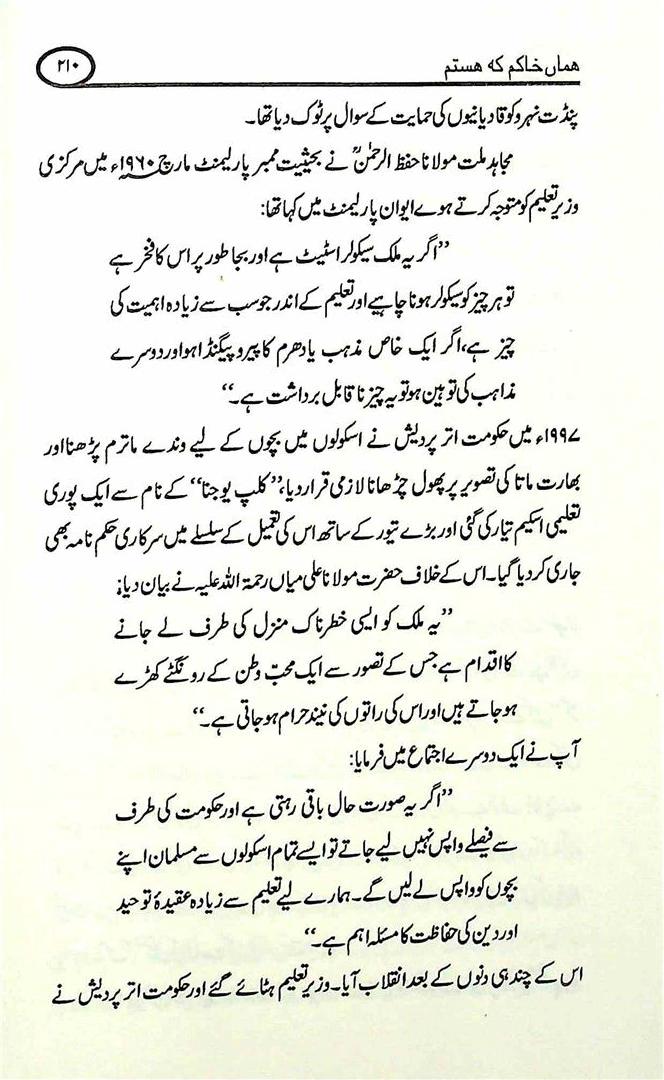 ہماں خاکم کہ ہستم
۲۱۰
پنڈت نہرو کو قادیانیوں کی حمایت کے سوال پر ٹوک دیا تھا۔
مجاہد ملت مولانا حفظ الرحمٰنؒ نے بحیثیت ممبر پارلیمنٹ مارچ ۱۹۶۰ء میں مرکزی
وزیر تعلیم کو متوجہ کرتے ہوے ایوان پارلیمنٹ میں کہا تھا:
”اگر یہ ملک سیکولر اسٹیٹ ہے اور بجا طور پر اس کا فخر ہے
تو ہر چیز کو سیکولر ہونا چاہیے اور تعلیم کے اندر جو سب سے زیادہ اہمیت کی
چیز ہے، اگر ایک خاص مذہب یا دھرم کا پروپیگنڈا ہو اور دوسرے
مذاہب کی توہین ہو تو یہ چیز ناقابل برداشت ہے۔“
۱۹۹۷ء میں حکومت اتر پردیش نے اسکولوں میں بچوں کے لیے وندے ماترم پڑھنا اور
بھارت ماتا کی تصویر پر پھول چڑھانا لازمی قرار دیا، ”کلپ یوجنا“ کے نام سے ایک پوری
تعلیمی اسکیم تیار کی گئی اور بڑے تیور کے ساتھ اس کی تعمیل کے سلسلے میں سرکاری حکم نامہ بھی
جاری کر دیا گیا۔ اس کے خلاف حضرت مولانا علی میاں رحمۃ اللہ علیہ نے بیان دیا:
”یہ ملک کو ایسی خطرناک منزل کی طرف لے جانے
کا اقدام ہے جس کے تصور سے ایک محبّ وطن کے رونگٹے کھڑے
ہو جاتے ہیں اور اس کی راتوں کی نیند حرام ہو جاتی ہے۔“
آپ نے ایک دوسرے اجتماع میں فرمایا:
”اگر یہ صورت حال باقی رہتی ہے اور حکومت کی طرف
سے فیصلے واپس نہیں لیے جاتے تو ایسے تمام اسکولوں سے مسلمان اپنے
بچوں کو واپس لے لیں گے۔ ہمارے لیے تعلیم سے زیادہ عقیدۂ توحید
اور دین کی حفاظت کا مسئلہ اہم ہے۔“
اس کے چند ہی دنوں کے بعد انقلاب آیا۔ وزیر تعلیم ہٹائے گئے اور حکومت اتر پردیش نے